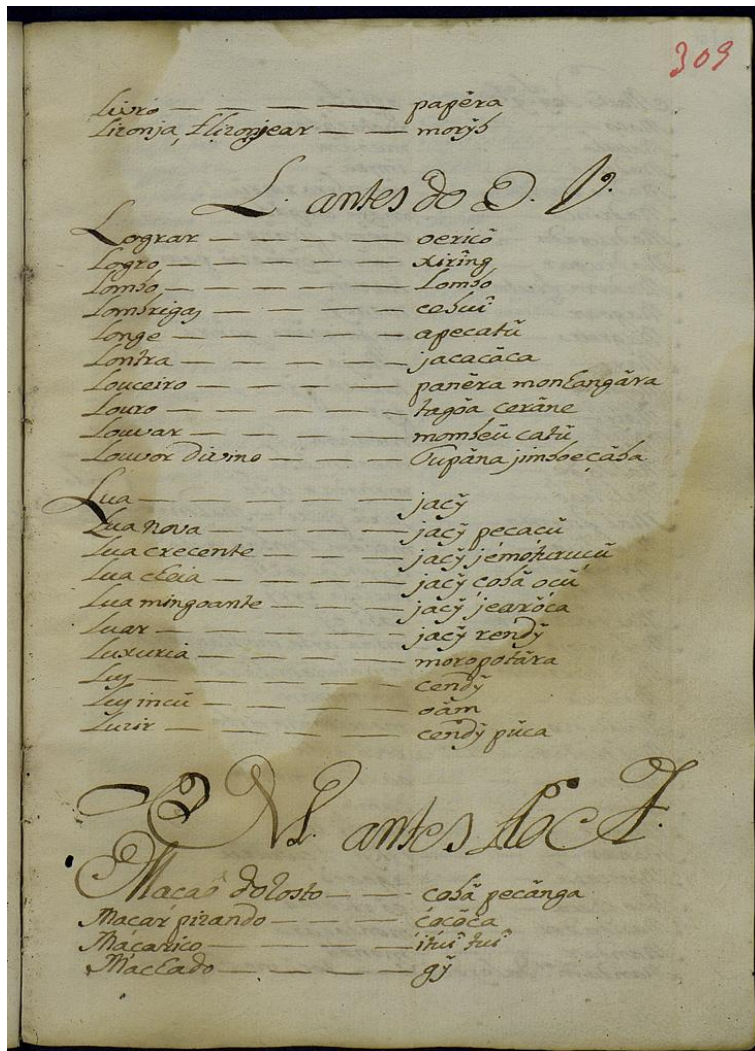 309
Livro — — — — papẽra
Lizonja, Elizonjear — — morỹb
L. antes do O. V.
Lograr — — — — oericõ
Logro — — — — xirĩng
Lombo — — — — Lombo
Lombrigas — — — cebuî
Longe — — — — apecatũ
Lontra — — — — jacacãca
Louceiro — — — — panẽra monhangãra
Louro — — — — tagõa cerãne
Louvar — — — — mombeũ catũ
Louvor divino — — — Tupãna jimboeçãba
Lua — — — — jacỹ
Lua nova — — — — jacỹ peçaçũ
Lua crecente — — — jacỹ jemoturuçũ
Lua cheia — — — — jacỹ cobã oçũ
Lua mingoante — — — jacỹ jearõca
Luar — — — — jacỹ rendỹ
Luxuria — — — — moropotãra
Luz — — — — cendỹ
Luz in cũ — — — — oãm
Luzir — — — — cendỹ pũca
M. antes do A.
Maçaã do Rosto — — cobã pecãnga
Maçar pizando — — çoçõca
Maçarico — — — ituî tuî
Machado — — — gỹ